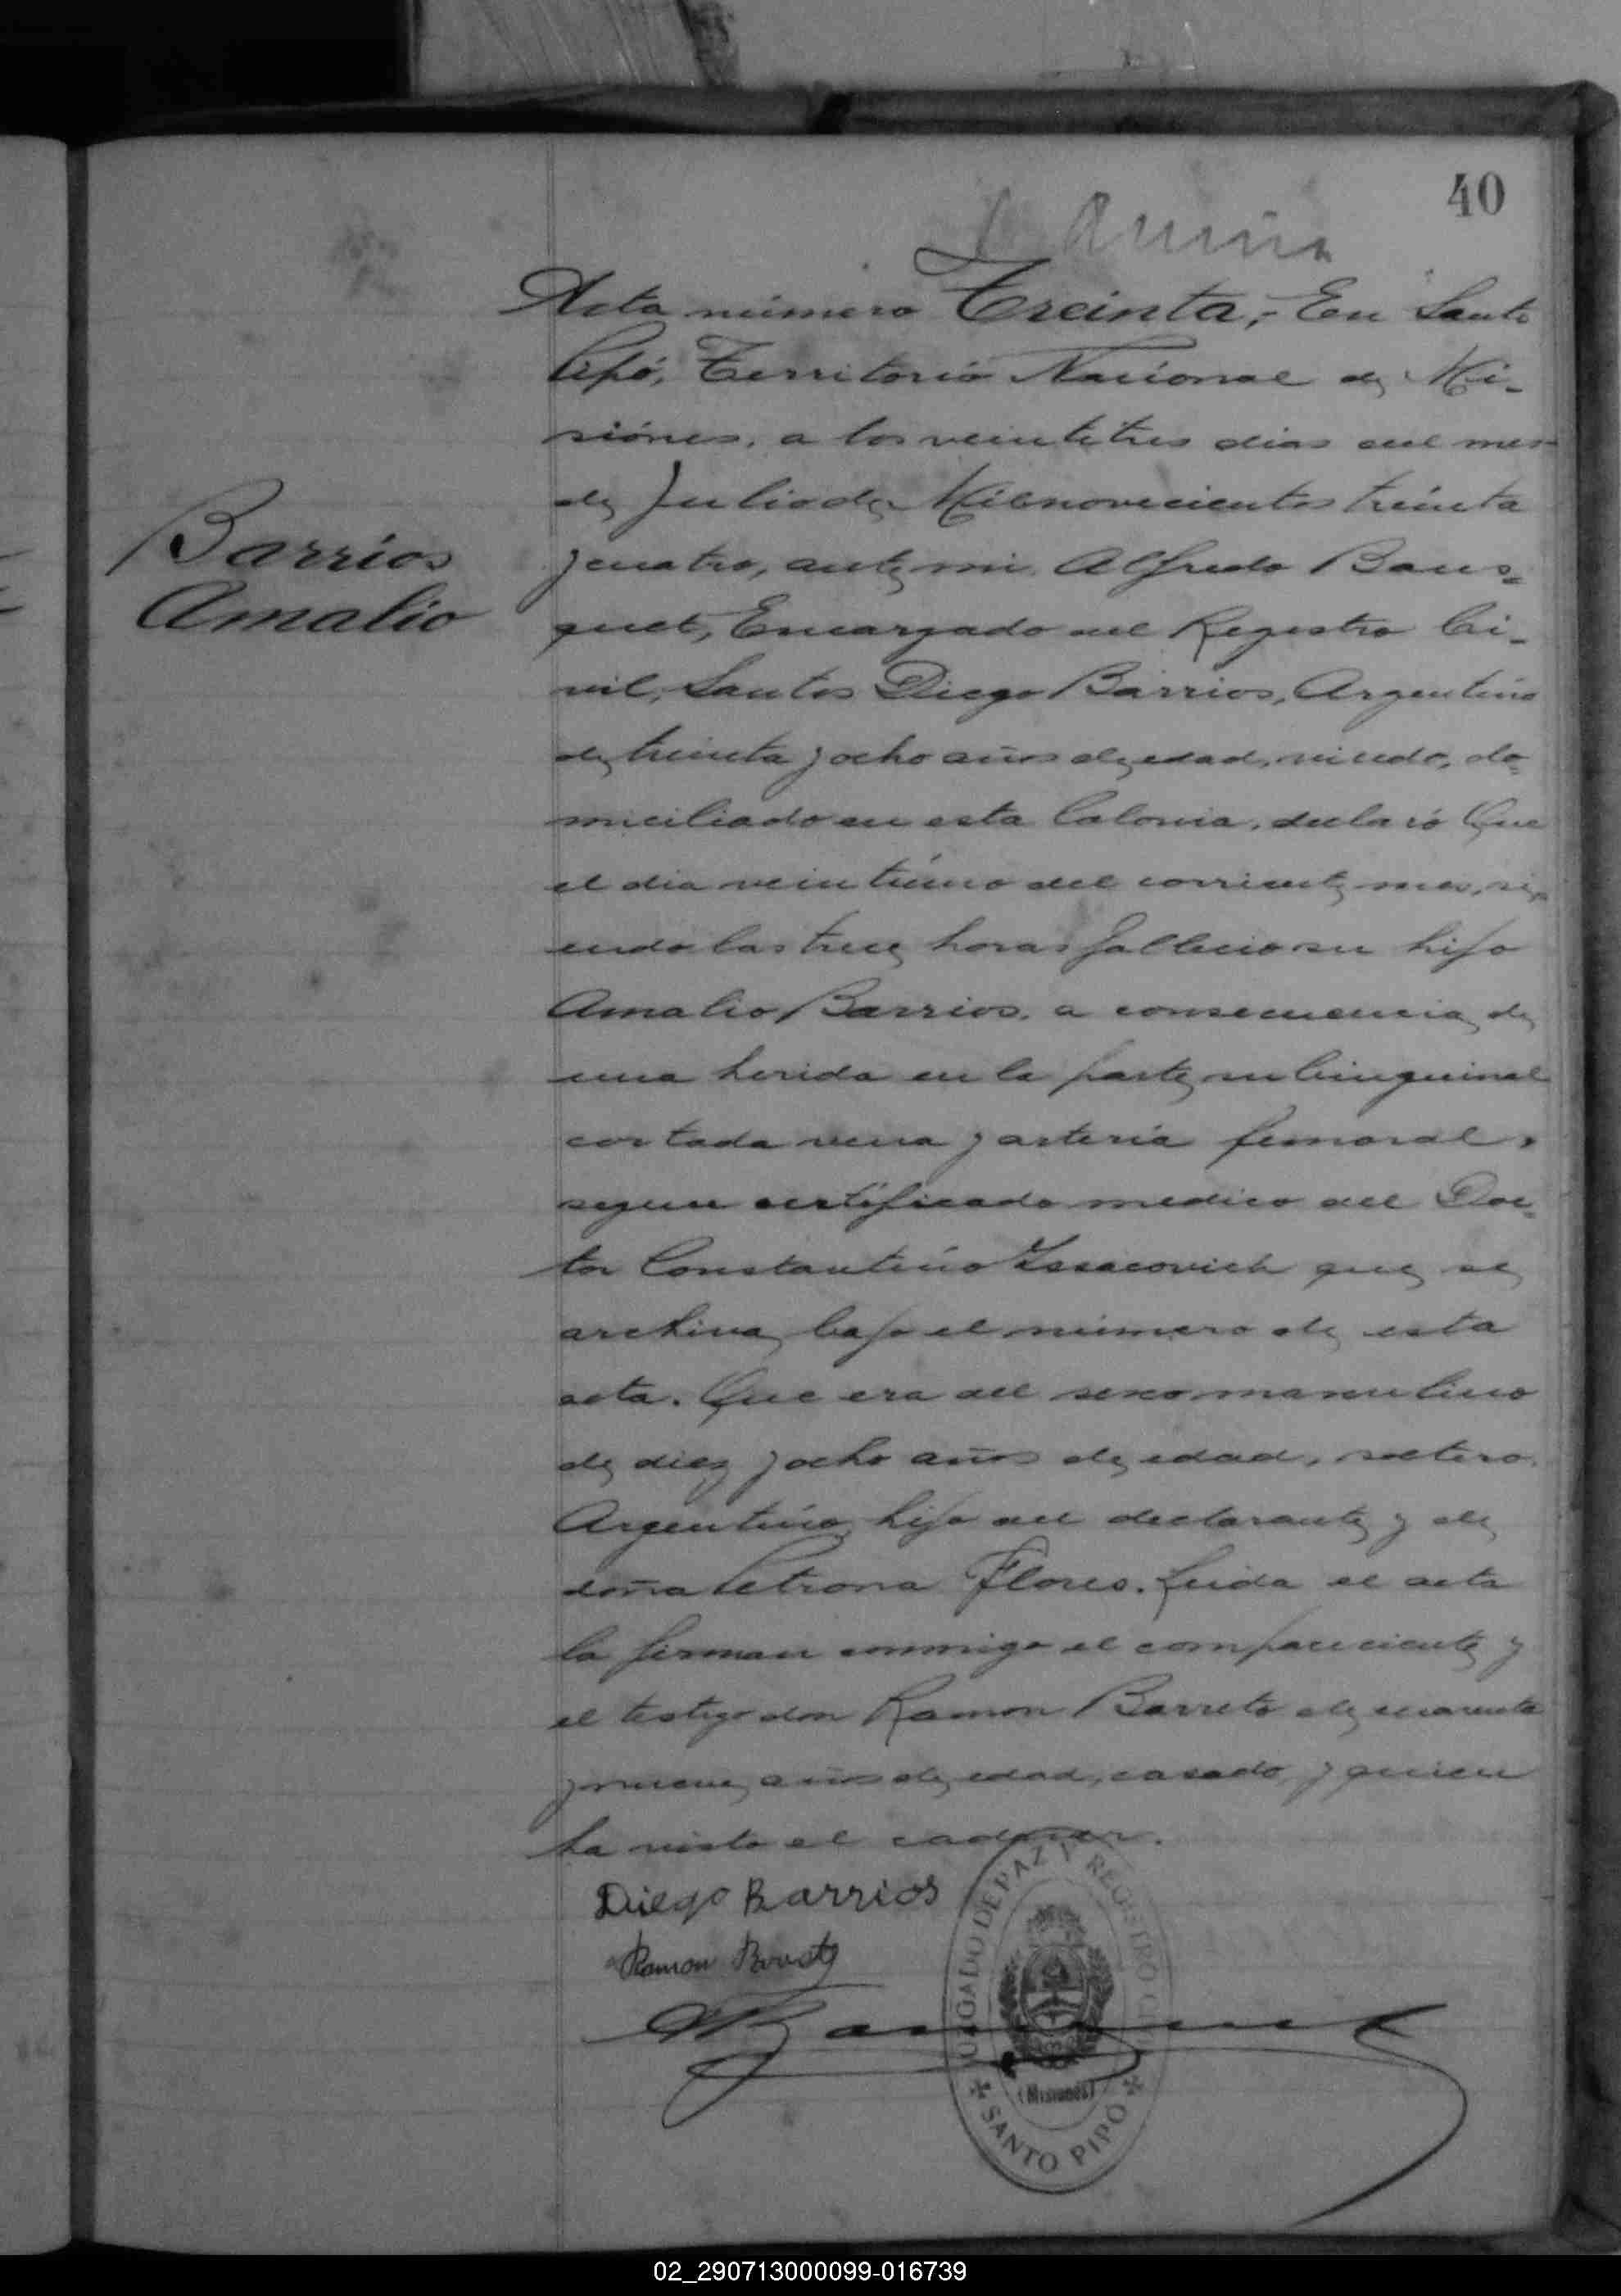 40
Acta número Treinta,- En Santo
Pipó, Territorio Nacional de Mi-
siónes, a los veintitres dias del mes
de Julio de Milnovecientos treinta
y cuatro, ante mi Alfredo Baus=
quet, Encargado del Registro Ci-
vil, Santos Diego Barrios, Argentino
de treinta y ocho años de edad, viudo, do=
miciliado en esta Colonia, declaró Que
el dia veintiuno del corriente mes, si
endo las trece horas fallecio su hijo
Amalio Barrios, a consecuencia de
una herida en la parte subinguinal
cortada vena y arteria femoral,
segun certificado medico del Doc=
tor Constantino Issacovich que se
archiva bajo el número de esta
acta. Que era del sexo masculino
de diez y ocho años de edad, soltero,
Argentino, hijo del declarante y de
doña Petrona Flores. Leida el acta
la firman conmigo el compareciente y
el testigo don Ramon Barreto de cuarenta
y nueve años de edad, casado, y quien
ha visto el cadaver.
Barrios
Amalio
Diego Barrios
Ramon
JUZGADO DE PAZ Y REGISTRO CIVIL
(Misiones)
SANTO PIPÓ
02_290713000099-016739